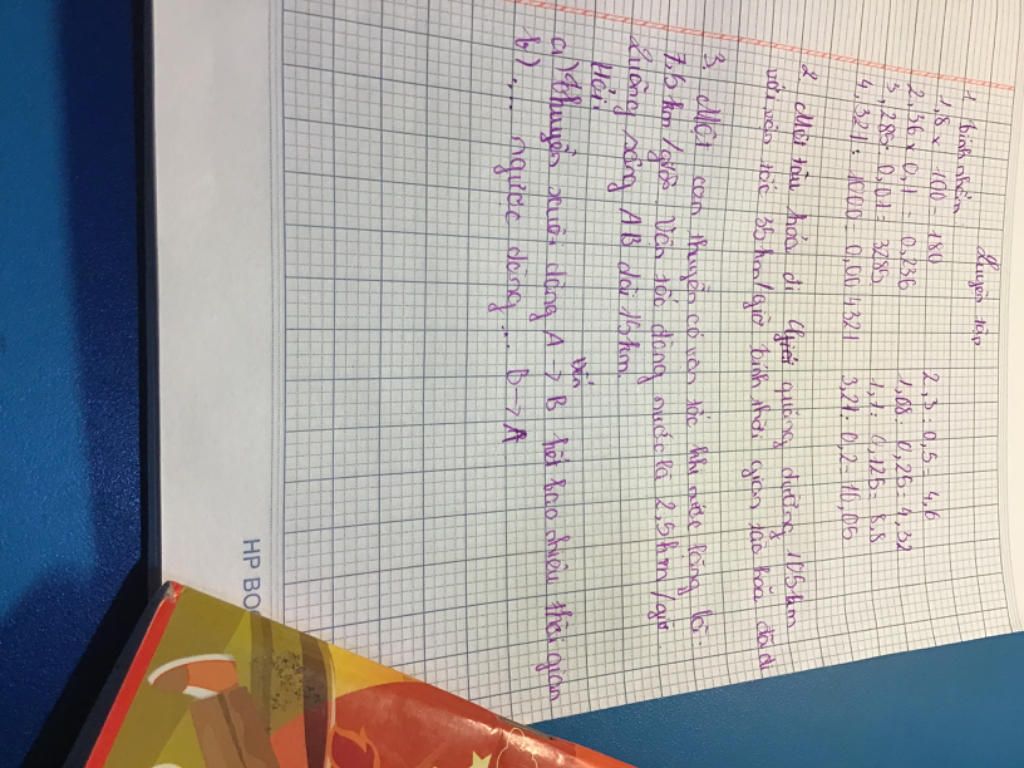 Luyện tập
1 Tính nhẩm
1,8 x 100 = 180
2,36 x 0,1 = 0,236
3,28 : 0,01 = 328
4,321 : 1000 = 0,004321
2,3 : 0,5 = 4,6
1,08 : 0,25 = 4,32
1,1 : 0,125 = 8,8
3,21 : 0,2 = 16,05
2 Một tàu hỏa đi quãng đường 105km
với vận tốc 35km/giờ tính thời gian tàu hỏa đã đi
3 Một con thuyền có vận tốc khi nước lặng là
7,5km/giờ. Vận tốc dòng nước là 2,5km/giờ
Quãng sông AB dài 15km.
Hỏi
a) thuyền xuôi dòng A → B hết bao nhiêu thời gian
b) ... ngược dòng ... B → A
HP BOO